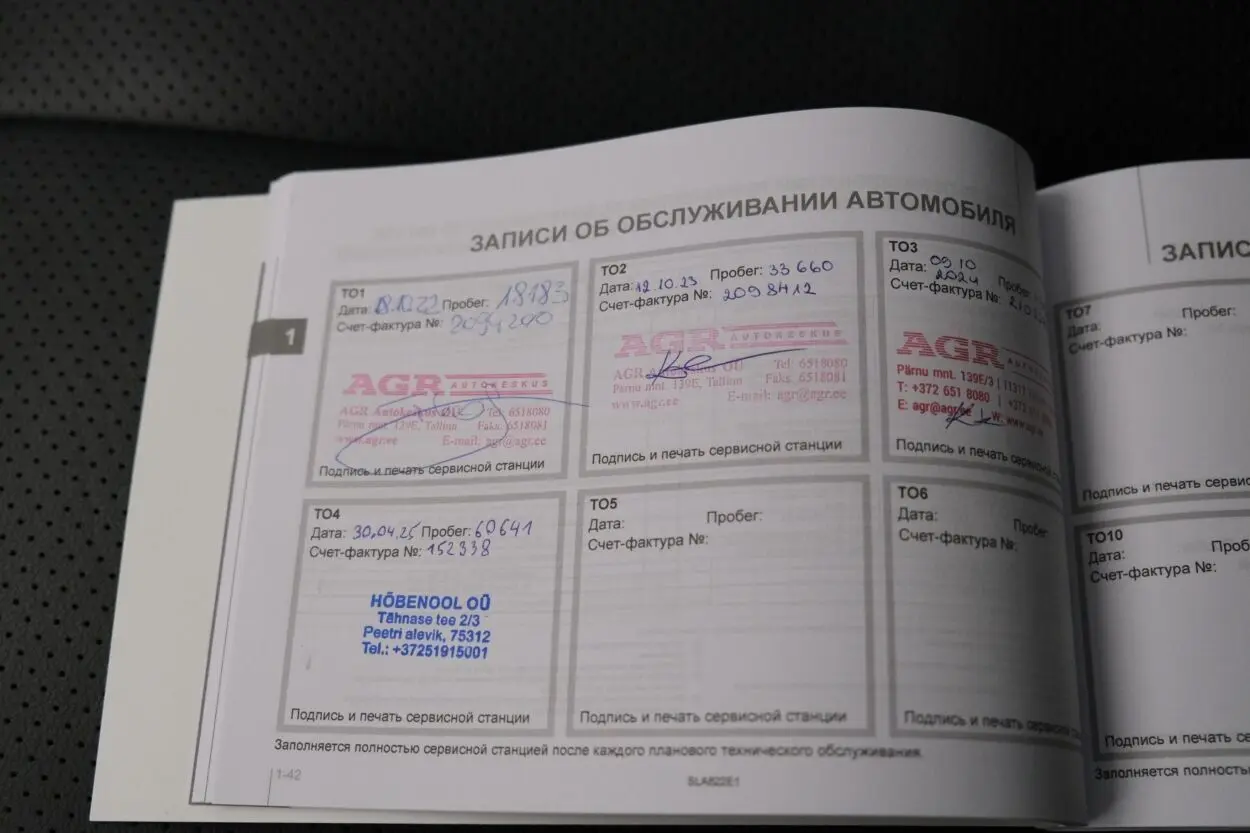 ЗАПИСИ ОБ ОБСЛУЖИВАНИИ АВТОМОБИЛЯ
1
ТО1
Дата: 18.10.22 Пробег: 18183
Счет-фактура №: 2094200
AGR AUTOKESKUS
AGR Autokeskus OÜ Tel: 6518080
Pärnu mnt. 139E, Tallinn Faks: 6518081
www.agr.ee E-mail: agr@agr.ee
Подпись и печать сервисной станции
ТО2
Дата: 12.10.23 Пробег: 33 660
Счет-фактура №: 2098412
AGR AUTOKESKUS
AGR Autokeskus OÜ Tel: 6518080
Pärnu mnt. 139E, Tallinn Faks: 6518081
www.agr.ee E-mail: agr@agr.ee
Подпись и печать сервисной станции
ТО3
Дата: 09.10 2024 Пробег:
Счет-фактура №:
AGR
Pärnu mnt. 139E/3 |
T: +372 651 8080 | +372
E: agr@agr.ee W: www.agr.ee
Подпись и печать сервисной
ТО4
Дата: 30.04.25 Пробег: 60641
Счет-фактура №: 152338
HÕBENOOL OÜ
Tähnase tee 2/3
Peetri alevik, 75312
Tel.: +37251915001
Подпись и печать сервисной станции
ТО5
Дата: Пробег:
Счет-фактура №:
Подпись и печать сервисной станции
ТО6
Дата: Пробег:
Счет-фактура №:
Подпись и печать сервисной
Заполняется полностью сервисной станцией после каждого планового технического обслуживания.
1-42
SLA622E1
ЗАПИС
ТО7
Дата: Пробег:
Счет-фактура №:
Подпись и печать сервис
ТО10
Дата: Проб
Счет-фактура №:
Подпись и печать се
Заполняется полность